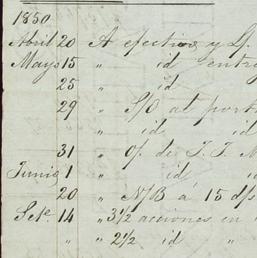 1850
Abril 20 A efectivo y L/.
Mayo 15 " id entre
25 " id
29 " S/O al port
" id id
31 " O/ de T. T. M
Junio 1 " id id
20 " N/B á 15 d/s
Sete. 14 " 3 1/2 acciones en
" " 2 1/2 id "